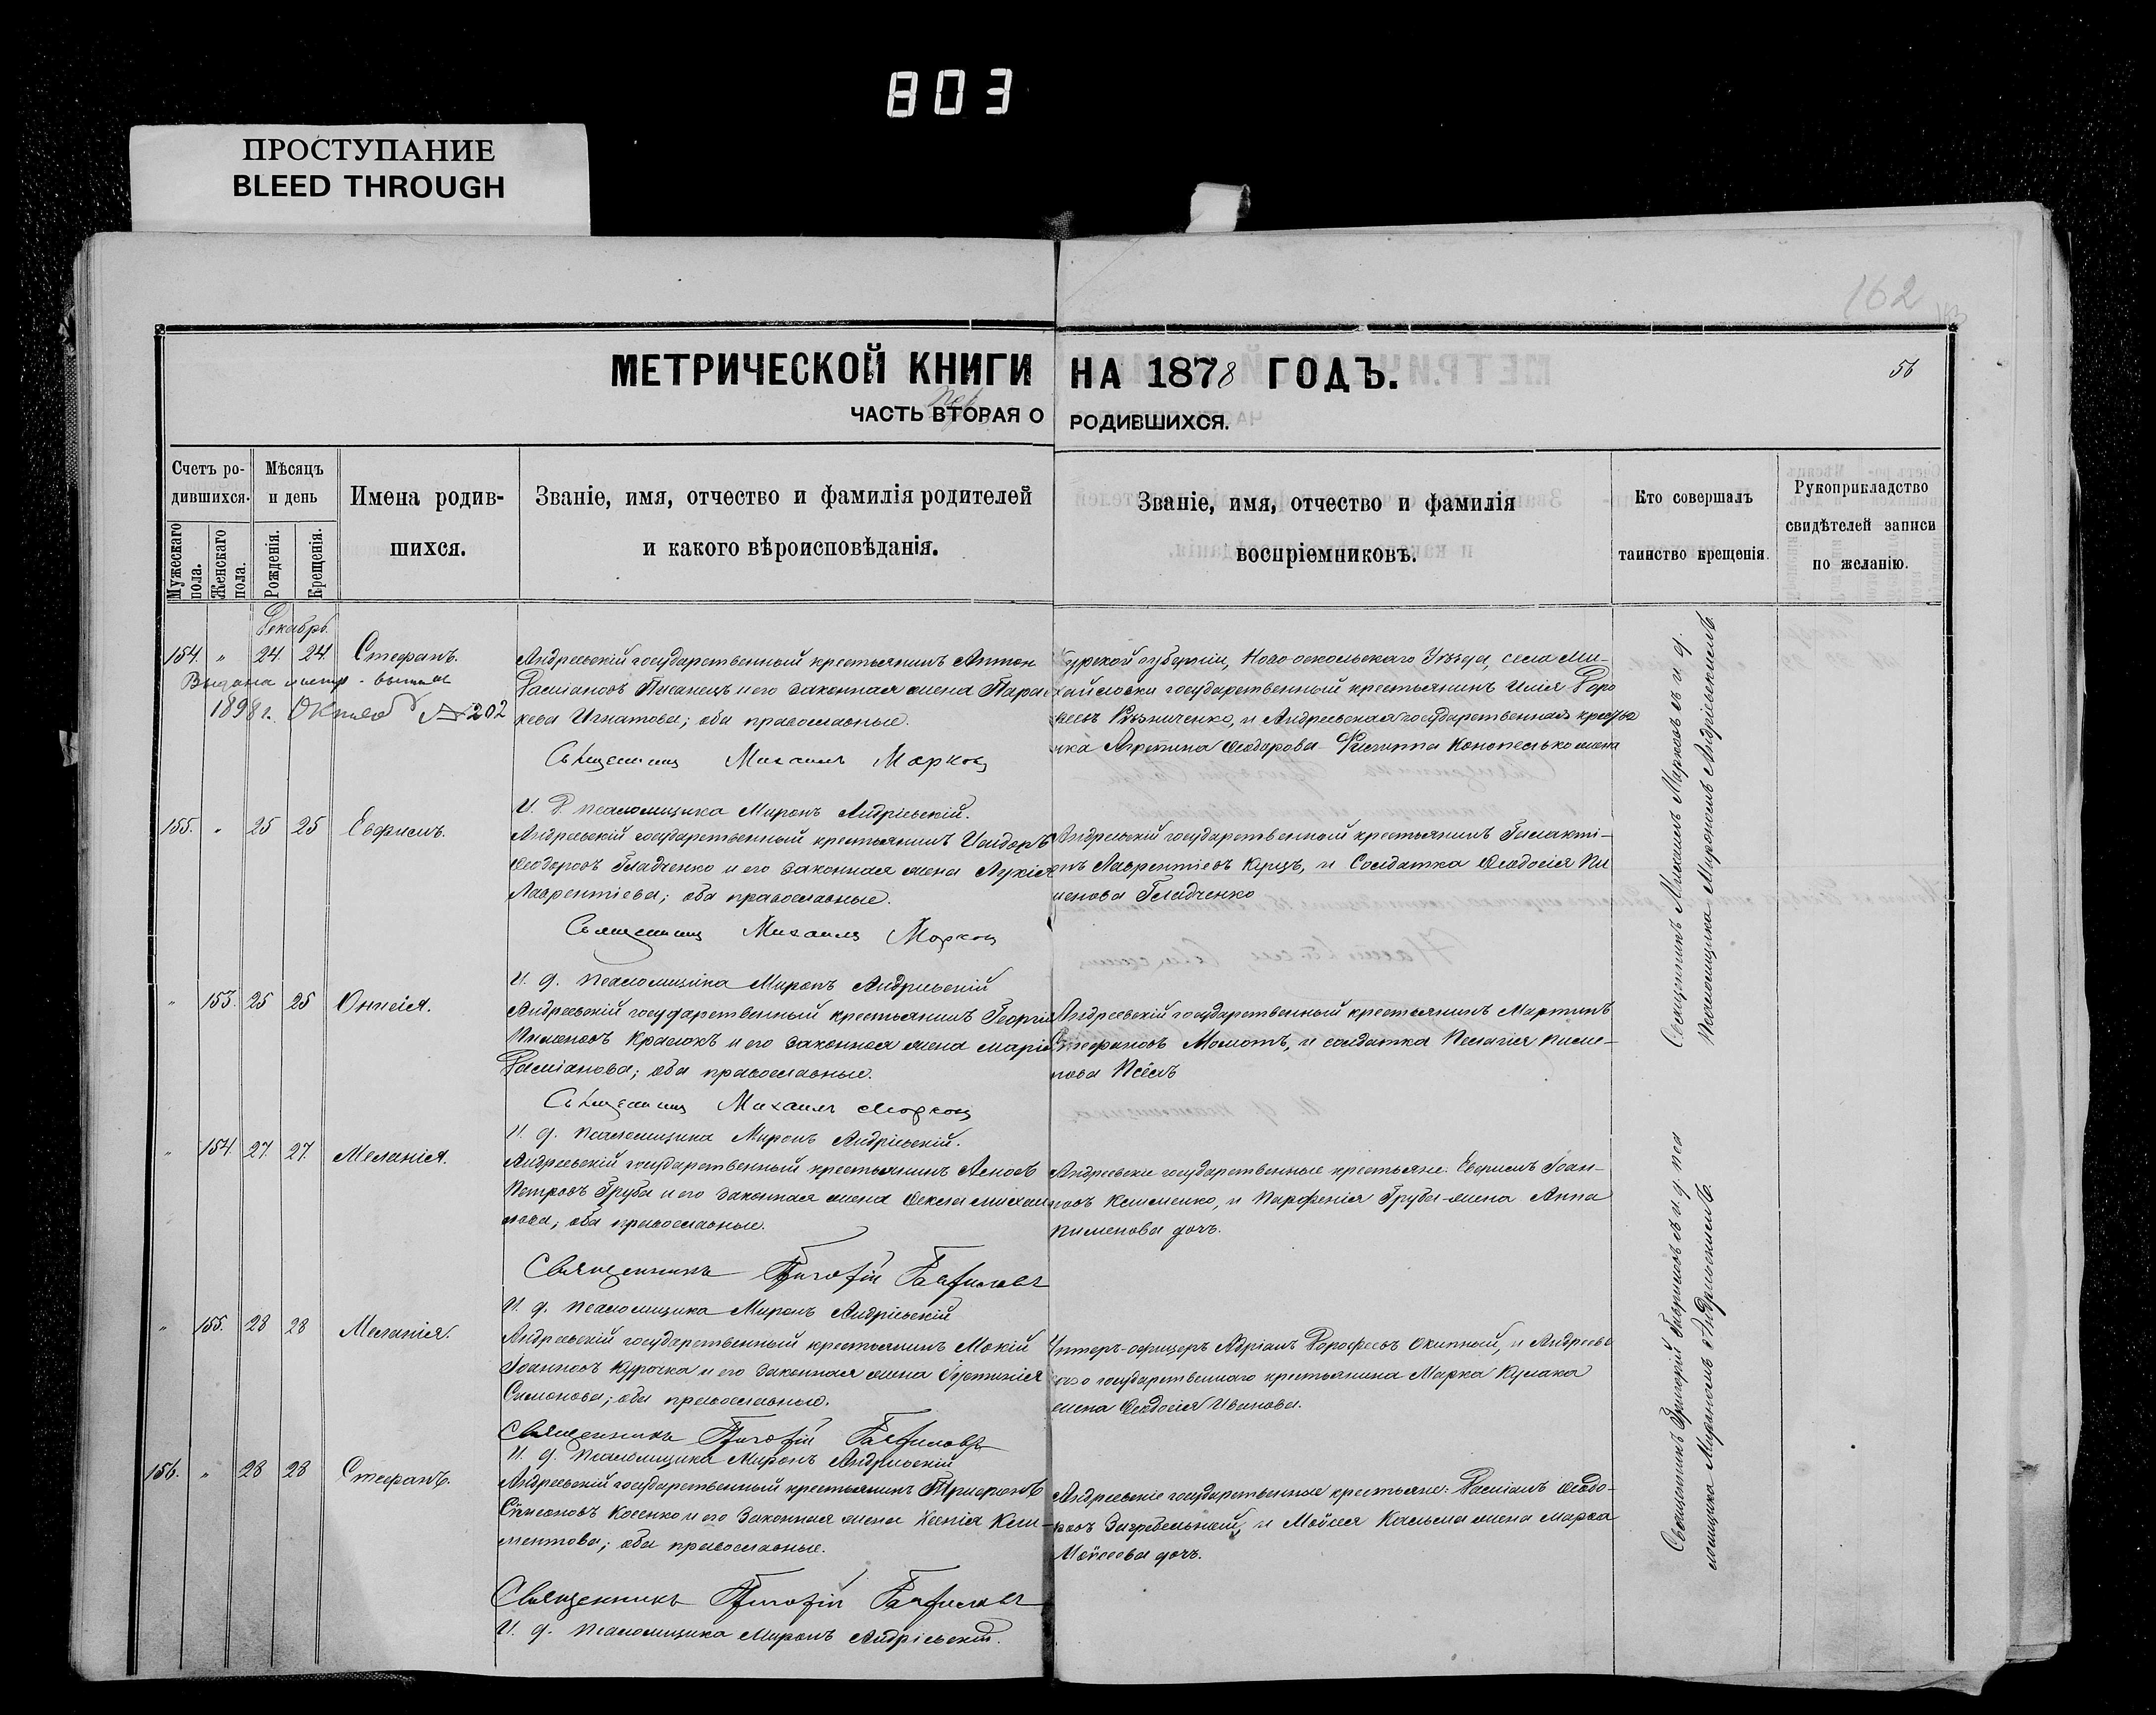 803
ПРОСТУПАНИЕ
BLEED THROUGH
162
МЕТРИЧЕСКОЙ КНИГИ НА 1878 ГОДЪ.
56
ЧАСТЬ ВТОРАЯ О РОДИВШИХСЯ.
Счетъ родившихся.
Мужескаго пола.
Женскаго пола.
Мѣсяцъ и день
Рожденія.
Крещенія.
Имена родившихся.
Званіе, имя, отчество и фамилія родителей
и какого вѣроисповѣданія.
Званіе, имя, отчество и фамилія
воспріемниковъ.
Кто совершалъ
таинство крещенія.
Рукоприкладство
свидѣтелей записи
по желанію.
Декабрь.
154. " 24. 24. Стефанъ.
Выдана
1898 г. № 202
Андреевскій государственный крестьянинъ Антон
Дамiановъ Писанецъ и его законная жена Парас
кева Игнатова; оба православные.
Священникъ Михаилъ Марковъ
И. д. псаломщика Миронъ Андріевскій.
Курской губерніи, Ново-оскольскаго Уѣзда, села Ми-
хайловки государственный крестьянинъ Илія
и Андреевская государственная крестья
нка Ѳеодорова Филиппа жена
155. " 25 25 Евфимъ.
Андреевскій государственный крестьянинъ Исидоръ
Ѳеодоровъ Гладченко и его законная жена Лукія
Лаврентіева; оба православные.
Священникъ Михаилъ Марковъ
И. д. псаломщика Миронъ Андріевскій
Андреевскій государственный крестьянинъ Галакті-
онъ Лаврентіевъ и Солдатка Ѳеодосія Пи
менова Гладченко
" 153. 25 25 Онисія.
Андреевскій государственный крестьянинъ Георгій
Пименовъ и его законная жена Марія
Даміанова; оба православные.
Священникъ Михаилъ Марковъ
И. д. псаломщика Миронъ Андріевскій.
Андреевскій государственный крестьянинъ Мартинъ
Стефановъ Момотъ, и солдатка Пелагія Пиме-
нова
" 154. 27. 27. Меланія.
Андреевскій государственный крестьянинъ
Петровъ Груба и его законная жена Ѳекла Михаи
лова; оба православные.
Священникъ Григорій Гавриловъ
И. д. псаломщика Миронъ Андріевскій
Андреевскіе государственные крестьяне: Евфимъ Іоан-
новъ Клименко, и Парфенія Груба жена Анна
Пименова дочь.
" 155. 28 28 Меланія.
Андреевскій государственный крестьянинъ Мокій
Іоанновъ Курочка и его законная жена
Симонова; оба православные.
Священникъ Григорій Гавриловъ
И. д. псаломщика Миронъ Андріевскій
Унтеръ-офицеръ Адріанъ Дорофеевъ Окипный, и Андреевс
каго государственнаго крестьянина Марка Кулака
жена Ѳеодосія Иванова.
156. " 28 28 Стефанъ.
Андреевскій государственный крестьянинъ Трифонъ
Симеоновъ Косенко и его законная жена Ксенія Кли-
ментова; оба православные.
Священникъ Григорій Гавриловъ
И. д. псаломщика Миронъ Андріевскій.
Андреевскіе государственные крестьяне: Даміанъ Ѳеодо-
ровъ Загребельный, и Мойсея жена Марѳа
Мойсеева дочь.
Священникъ Михаилъ Марковъ съ и. д.
псаломщика Мирономъ Андріевскимъ.
Священникъ Григорій Гавриловъ съ и. д. пса
ломщика Мирономъ Андріевскимъ.